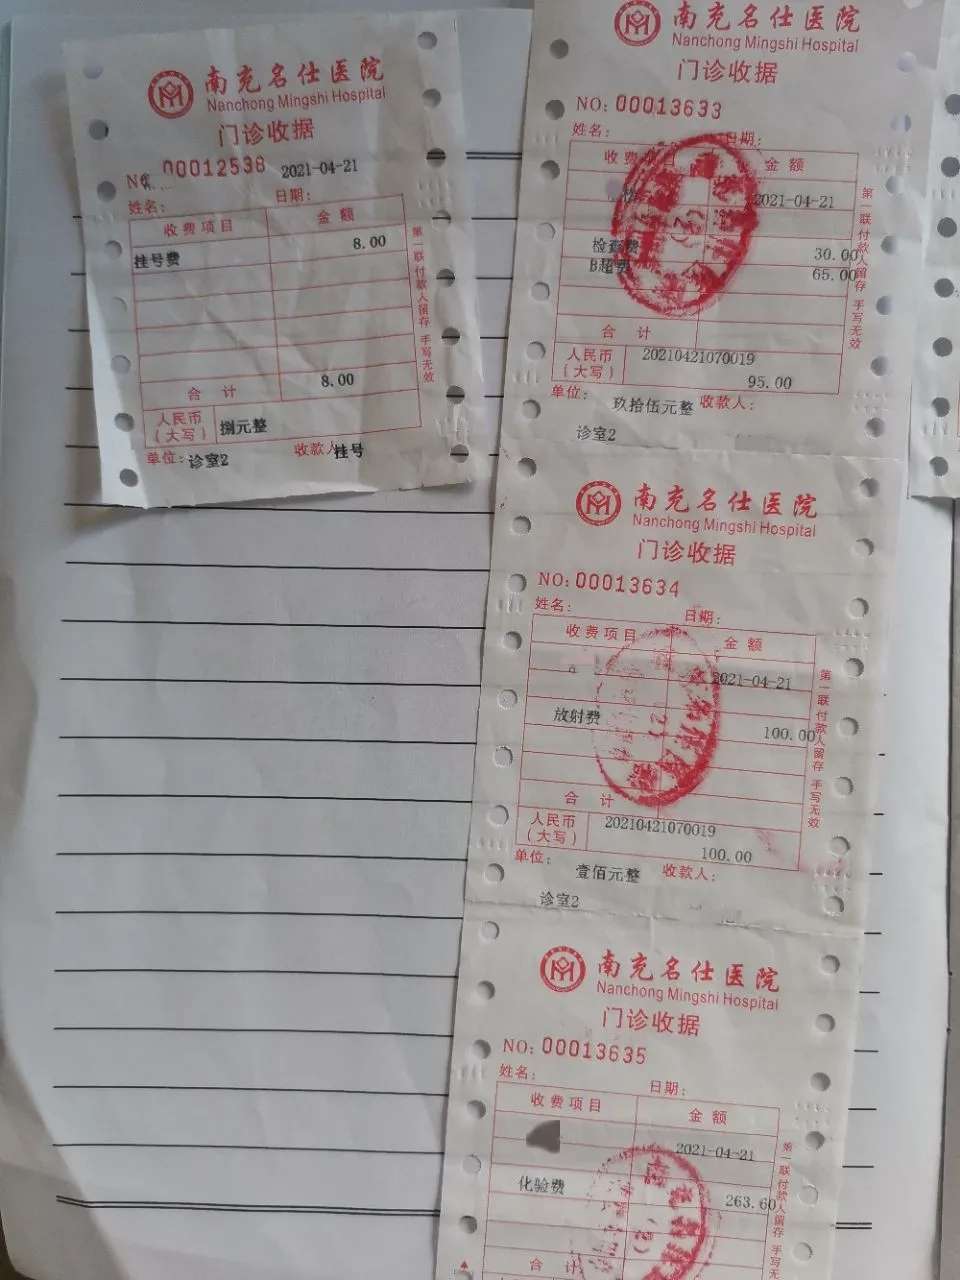 南充名仕医院
Nanchong Mingshi Hospital
门诊收据
NO: 00012538 2021-04-21
姓名: 日期:
收费项目 金额
挂号费 8.00
合计 8.00
人民币(大写) 捌元整
单位: 诊室2 收款人 挂号
第一联付款人留存 手写无效
南充名仕医院
Nanchong Mingshi Hospital
门诊收据
NO: 00013633
姓名: 日期:
收费项目 金额
2021-04-21
检查费 30.00
B超费 65.00
合计
人民币(大写) 20210421070019
95.00
单位: 玖拾伍元整 收款人:
诊室2
第一联付款人留存 手写无效
南充名仕医院
Nanchong Mingshi Hospital
门诊收据
NO: 00013634
姓名: 日期:
收费项目 金额
2021-04-21
放射费 100.00
合计
人民币(大写) 20210421070019
100.00
单位: 壹佰元整 收款人:
诊室2
第一联付款人留存 手写无效
南充名仕医院
Nanchong Mingshi Hospital
门诊收据
NO: 00013635
姓名: 日期:
收费项目 金额
2021-04-21
化验费 263.60
合计
第一联付款人留存 手写无